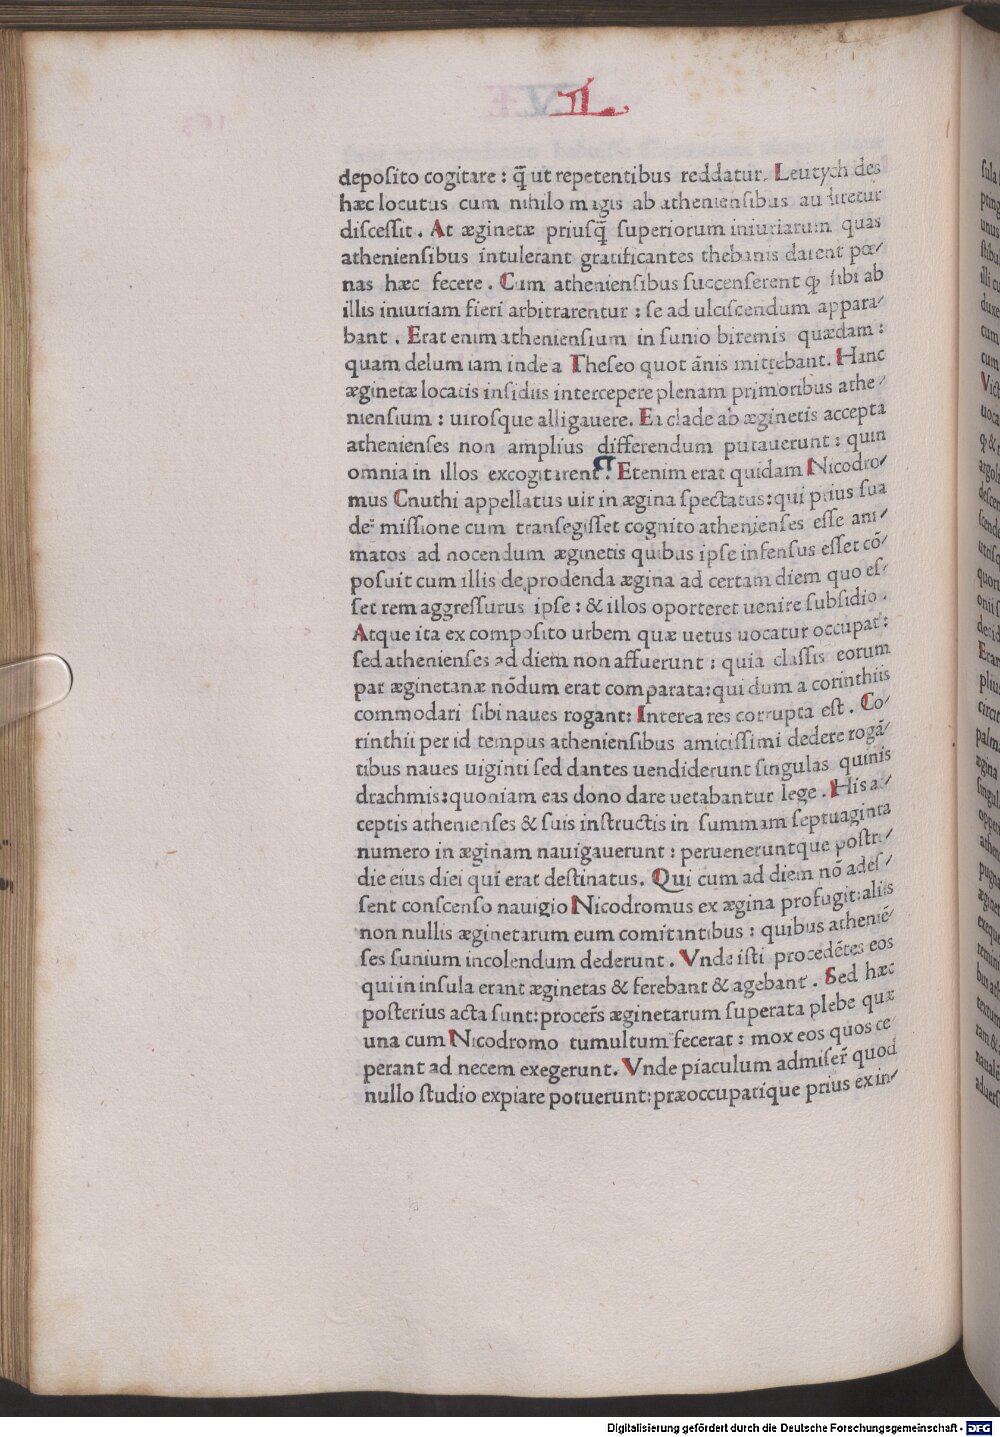 L
depoſito cogitare : q̃ ut repetentibus reddatur. Leutych des
hæc locutus cum nihilo magis ab athenienſibus audiretur
diſceſſit . At æginetæ priuſq̃ ſuperiorum iniuriarum quas
athenienſibus intulerant gratificantes thebanis darent pœ⸗
nas hæc fecere . Cum athenienſibus ſuccenſerent ꝙ ſibi ab
illis iniuriam fieri arbitrarentur : ſe ad ulciſcendum appara⸗
bant . Erat enim athenienſium in ſunio biremis quædam :
quam delum iam inde a Theſeo quot ãnis mittebant. Hanc
æginetæ locatis inſidiis intercepere plenam primoribus athe⸗
nienſium : uiroſque alligauere. Ea clade ab æginetis accepta
athenienſes non amplius differendum putauerunt : quin
omnia in illos excogitarent . Etenim erat quidam Nicodro⸗
mus Cnuthi appellatus uir in ægina ſpectatus:qui prius ſua
de miſſione cum tranſegiſſet cognito athenienſes eſſe ani⸗
matos ad nocendum æginetis quibus ipſe infenſus eſſet cõ⸗
poſuit cum illis de prodenda ægina ad certam diem quo eſ⸗
ſet rem aggreſſurus ipſe : & illos oporteret uenire ſubſidio .
Atque ita ex compoſito urbem quæ uetus uocatur occupat :
ſed athenienſes ad diem non affuerunt : quia claſſis eorum
par æginetanæ nõdum erat comparata:qui dum a corinthiis
commodari ſibi naues rogant: Interea res corrupta eſt . Co⸗
rinthii per id tempus athenienſibus amiciſſimi dedere rogã⸗
tibus naues uiginti ſed dantes uendiderunt ſingulas quinis
drachmis:quoniam eas dono dare uetabantur lege . His a⸗
ceptis athenienſes & ſuis inſtructis in ſummam ſeptuaginta
numero in æginam nauigauerunt : perueneruntque poſtri⸗
die eius diei qui erat deſtinatus. Qui cum ad diem nõ adeſ⸗
ſent conſcenſo nauigio Nicodromus ex ægina profugit:aliis
non nullis æginetarum eum comitantibus : quibus atheniẽ⸗
ſes ſunium incolendum dederunt . Vnde iſti procedẽtes eos
qui in inſula erant æginetas & ferebant & agebant . Sed hæc
poſterius acta ſunt:procer̃s æginetarum ſuperata plebe quæ
una cum Nicodromo tumultum fecerat : mox eos quos ce⸗
perant ad necem exegerunt. Vnde piaculum admiſer̃ quod
nullo ſtudio expiare potuerunt:præoccupatique prius ex in⸗
Digitalisierung gefördert durch die Deutsche Forschungsgemeinschaft - DFG